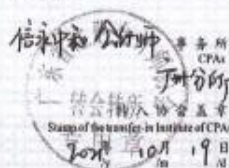 信永中和会计师事务所
CPAs
广州分所
转会转所
入协会盖章
Stamp of the transfer-in Institute of CPAs
2021年10月19日